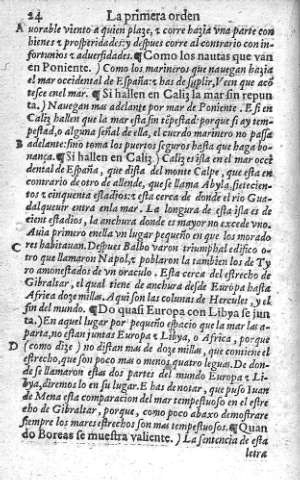 24 La primera orden
A uorable viento a quien plaze, z corre hazia vna parte con
bienes z prosperidades: y despues corre al contrario con in-
fortunios z aduersidades. ¶ Como los nautas que van
en Poniente. ) Como los marineros que nauegan hazia
el mar occidental de España: z has de suplir, Veen que acō
tesce enel mar. ¶ Si hallen en Caliz la mar sin repun
ta. ) Nauegan mas adelante por mar de Poniente. E si en
Caliz hallen que la mar esta sin tēpestad: porque si ay tem-
pestad, o alguna señal de ella, el cuerdo marinero no passa
B adelante: sino toma los puertos seguros hasta que haga bo-
nança. ¶ Si hallen en Caliz.) Caliz es isla en el mar occi
dental de España, que dista del monte Calpe, que esta en
contrario de otro de allende, que se llama Abyla, sietecien-
tos z cinquenta estadios: z esta cerca de donde el rio Gua-
dalqueuir entra enla mar. La longura de esta isla es de
cient estadios, la anchura donde es mayor no excede vno.
Auia primero enella vn lugar pequeño en que los morado-
C res habitauan. Despues Balbo varon triumphal edifico o-
tro que llamaron Napol, z poblaron la tambien los de Ty
ro amonestados de vn oraculo. Esta cerca del estrecho de
Gibraltar, el qual tiene de anchura desde Europa hasta
Africa doze millas. Aqui son las colunas de Hercules, y el
fin del mundo. ¶ Do quasi Europa con Libya se jun
ta.) En aquel lugar por pequeño espacio que la mar las a-
parta, no estan juntas Europa z Libya, o Africa, porque
D (como dize) no distan mas de doze millas, que contiene el
estrecho, que son poco mas o menos quatro leguas. De don-
de se llamaron estas dos partes del mundo Europa z Li-
bya, diremos lo en su lugar. E has de notar, que puso Iuan
de Mena esta comparacion del mar tempestuoso en el estre
cho de Gibraltar, porque, como poco abaxo demostrare
siempre los mares estrechos son mas tempestuosos. ¶ Quan
do Boreas se muestra valiente. ) La sentencia de esta
letra